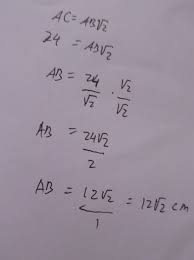 AC = AB√2
24 = AB√2
AB = 24/√2 · √2/√2
AB = 24√2/2
AB = 12√2/1 = 12√2 cm